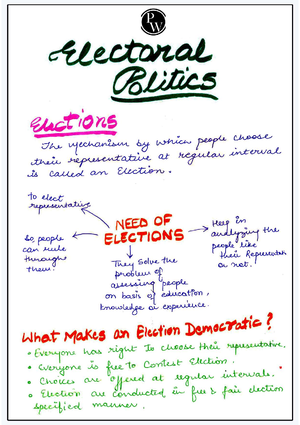 PW
Electoral
Politics
Elections
The mechanism by which people choose
their representative at regular interval
is called an Election.
To elect
representative
NEED OF
ELECTIONS
So, people
can rule
through
them.
They solve the
problem of
assessing people
on basis of education,
knowledge or experience.
Help in
analyzing the
people like
their Representative
or not.
What Makes an Election Democratic?
• Everyone has right to choose their representative.
• Everyone is free to Contest Election.
• Choices are offered at regular intervals.
• Election are conducted in free & fair election
specified manner.